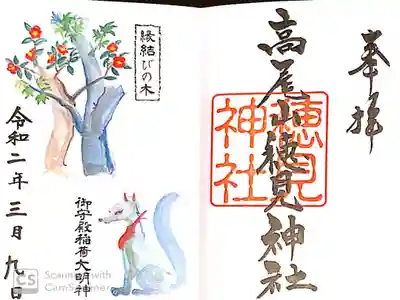 奉拝
高尾山穂見神社
穂見神社
縁結びの木
令和二年三月九日
御守殿稲荷大明神
CS Scanned with
CamScanner